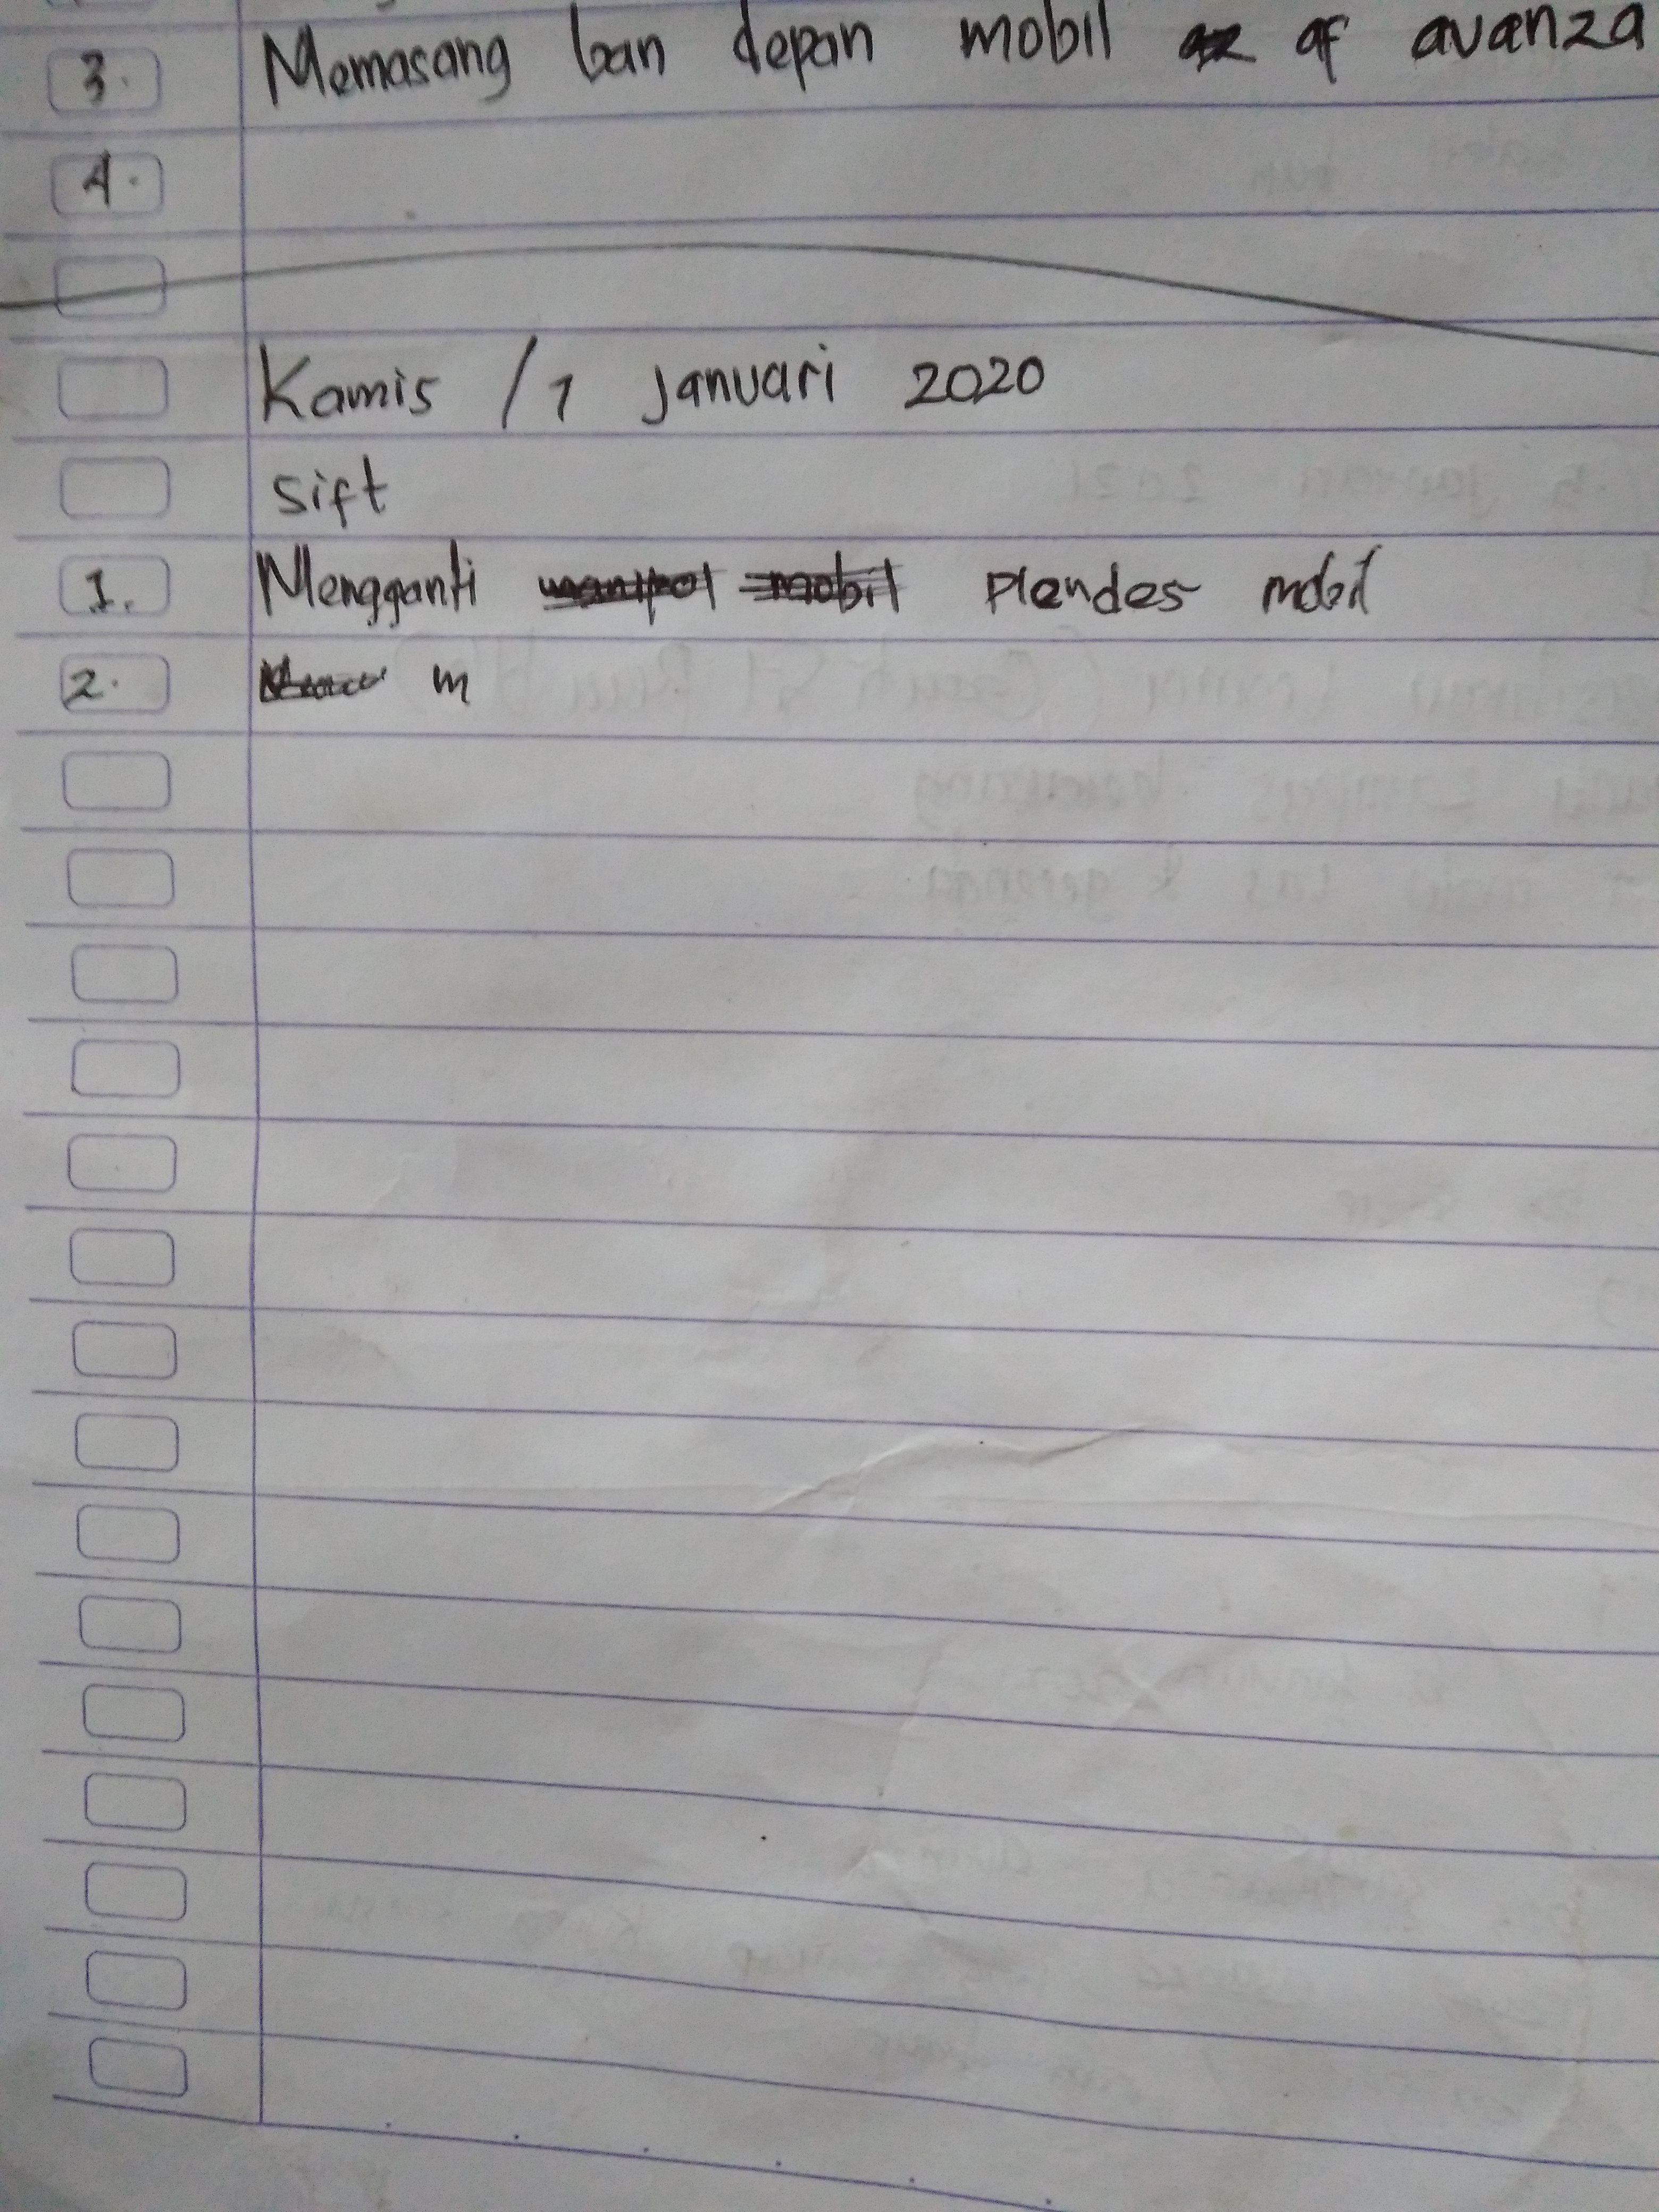 3. Memasang ban depan mobil af avanza
4.
Kamis / 1 Januari 2020
sift
1. Mengganti Plendes mobil
2. m